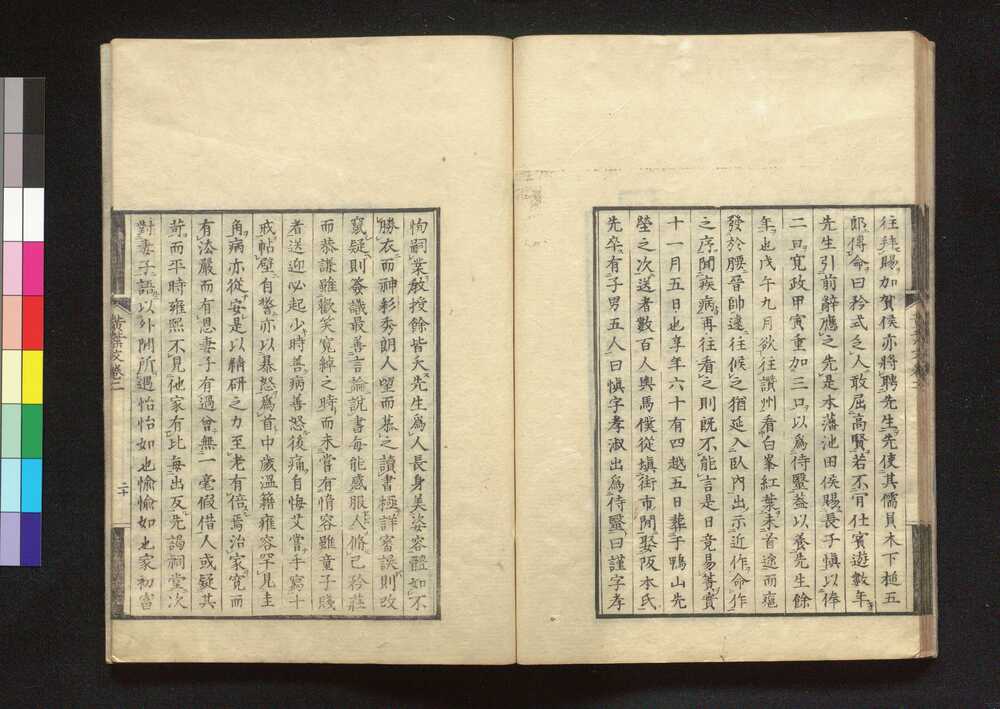 往拜賜加賀侯亦將聘先生先使其儒員木下槌五
郎傳命曰矜式之人敢屈高賢若不肎仕賓遊數年
先生引前辭應之先是本藩池田侯賜長子愼以俸
二口寛政甲寅重加三口以爲侍毉葢以養先生餘
年也戊午九月欲往讃州看白峯紅葉未首途而疽
發於腰晉帥遠往候之猶延入臥內出示近作命作
之序聞疾病再往看之則既不能言是日竟易簀實
十一月五日也享年六十有四越五日葬于鴨山先
塋之次送者數百人輿馬僕從塡街市聞娶阪本氏
先卒有子男五人曰愼字孝淑出爲侍毉曰謹字孝
恂嗣業教授餘皆夭先生爲人長身美姿容體如不
勝衣而神彩秀朗人望而恭之讀書極詳審誤則改
竄疑則簽識最善言論說書每能感服人脩己矜莊
而恭謙雖歡笑寛綽之時而未嘗有惰容雖童子賤
者送迎必起少時善病善怒後痛自悔艾嘗手寫十
戒帖壁自警亦以暴怒爲首中歲溫籍雍容罕見圭
角病亦從安是以精研之力至老有倍焉治家寛而
有法嚴而有恩妻子有過曾無一毫假借人或疑其
苛而平時雍熙不見他家有比每出反先謁祠堂次
對妻子語以外間所遇怡怡如也愉愉如也家初富
黃葉文卷二
二十